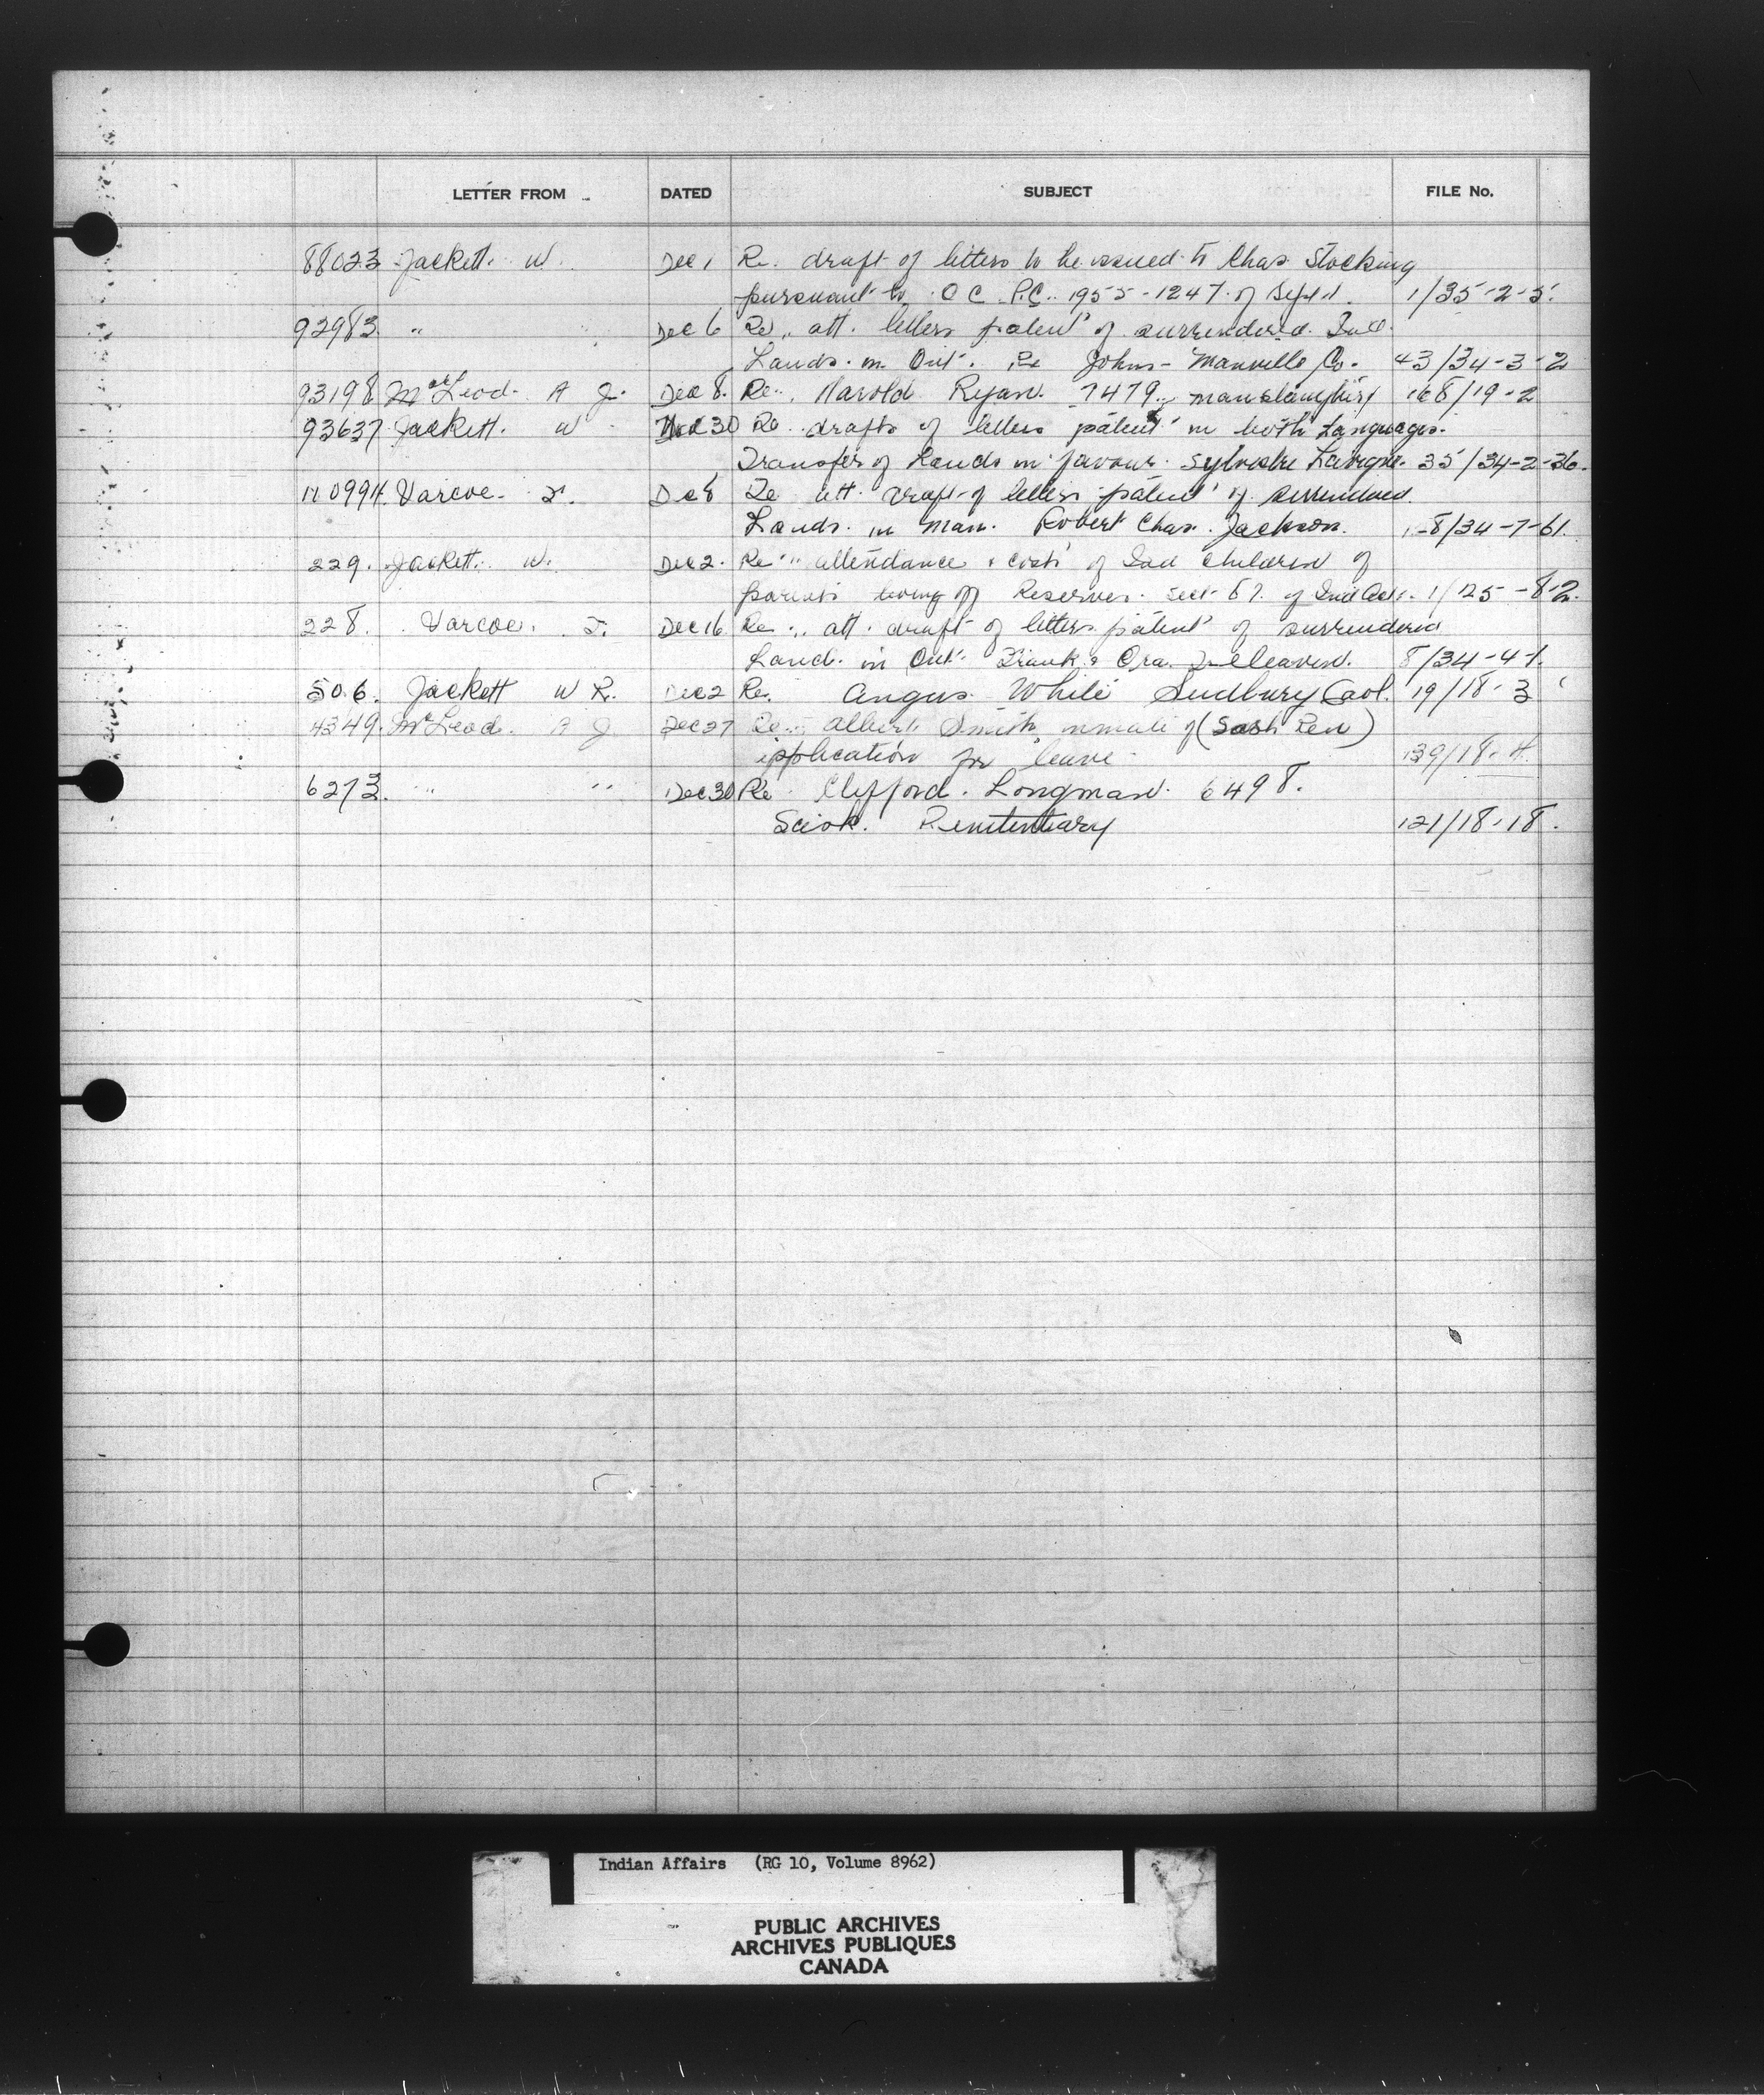 LETTER FROM DATED SUBJECT FILE No.
88023 Jackett. W. Dec 1 Re. draft of letters to be issued to Chas Stocking
pursuant to O C P.C. 1955-1247 of Sept 1. 1/35-2-5.
92983 " Dec 6 Re. att. letters patent of surrendered Ind.
Lands in Ont. Re Johns-Manville Co. 43/34-3-2
93198 McLeod A J. Dec 8. Re. Harold Ryan. 7479 manslaughter 168/19-2
93637 Jackett. W 30 Re drafts of letters patent in both Languages.
Transfer of Lands in favour Sylvestre Lavigne. 35/34-2-36.
Varcoe. F. Dec 8 Re att. draft of letters patent of surrendered
Lands in Man. Robert Chas. Jackson. 1-8/34-7-61.
229. Jackett. W. Dec 2. Re attendance & costs of Ind Children of
parents living off Reserves. Sect 67. of Ind Act. 1/125-8-2.
228. Varcoe. F. Dec 16 Re. att. draft of letters patent of surrendered
Land. in Ont. Frank & Ora 8/34-4-1.
506. Jackett W R. Dec 2 Re. Angus White Sudbury Gaol. 19/18-3
4349. McLeod. A J Dec 27 Re. Albert Smith inmate of (Sask Pen)
application for leave 139/18-4.
6273. " " Dec 30 Re Clifford. Longman. 6498.
Sask. Penitentiary 121/18-18.
Indian Affairs (RG 10, Volume 8962)
PUBLIC ARCHIVES
ARCHIVES PUBLIQUES
CANADA